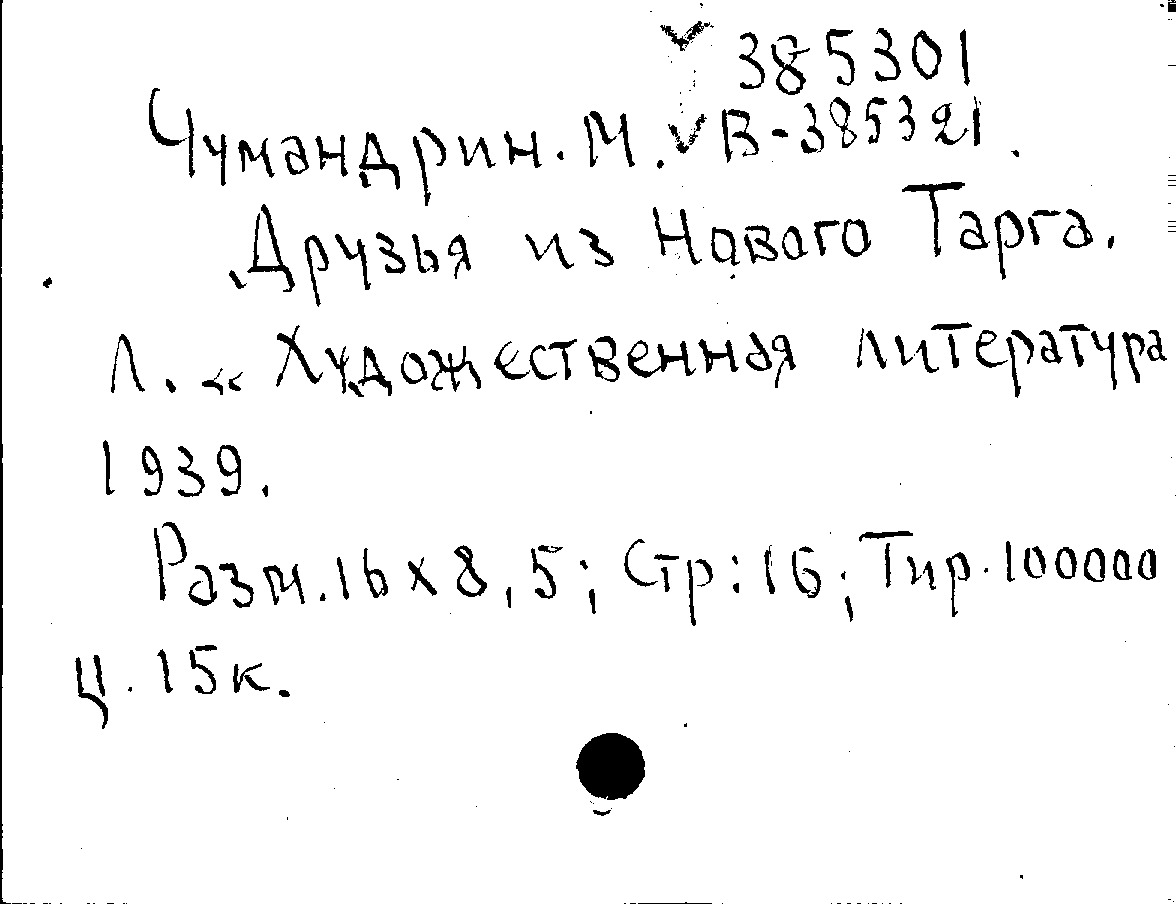 385301
Чумандрин. М. В-385321.
Друзья из Нового Тарга.
Л. « Художественная литература
1939.
Разм. 16 х 8,5; Стр: 16; Тир. 100000
ц. 15к.